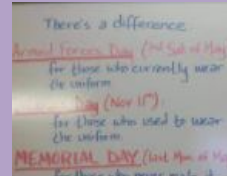 There's a difference
Armed Forces Day (3rd Sat of May
for those who currently wear
the uniform
Day (Nov 11th):
for those who used to wear
the uniform
MEMORIAL DAY (last Mon of Ma
for those who never made it